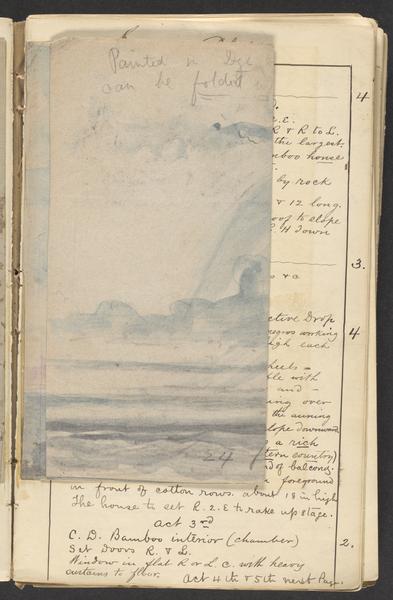 Painted in Dye
can be folded
4
R & R to L.
the largest.
bamboo house
by rock
& 12 long.
roof to slope
down
3.
s & a
ective Drop
negros working
4
high each
heels -
ble with
and -
ing over
the awning
slope downward
a rich
tern country)
nd of balcony
foreground
24
in front of cotton rows. about 18 in high
The house to set R. 2. E to rake up stage.
act 3rd
C. D. Bamboo interior (chamber)
2.
Set Doors R. & L.
Window in flat R or L. C. with heavy
curtains to floor.
Act 4th & 5th next Page.